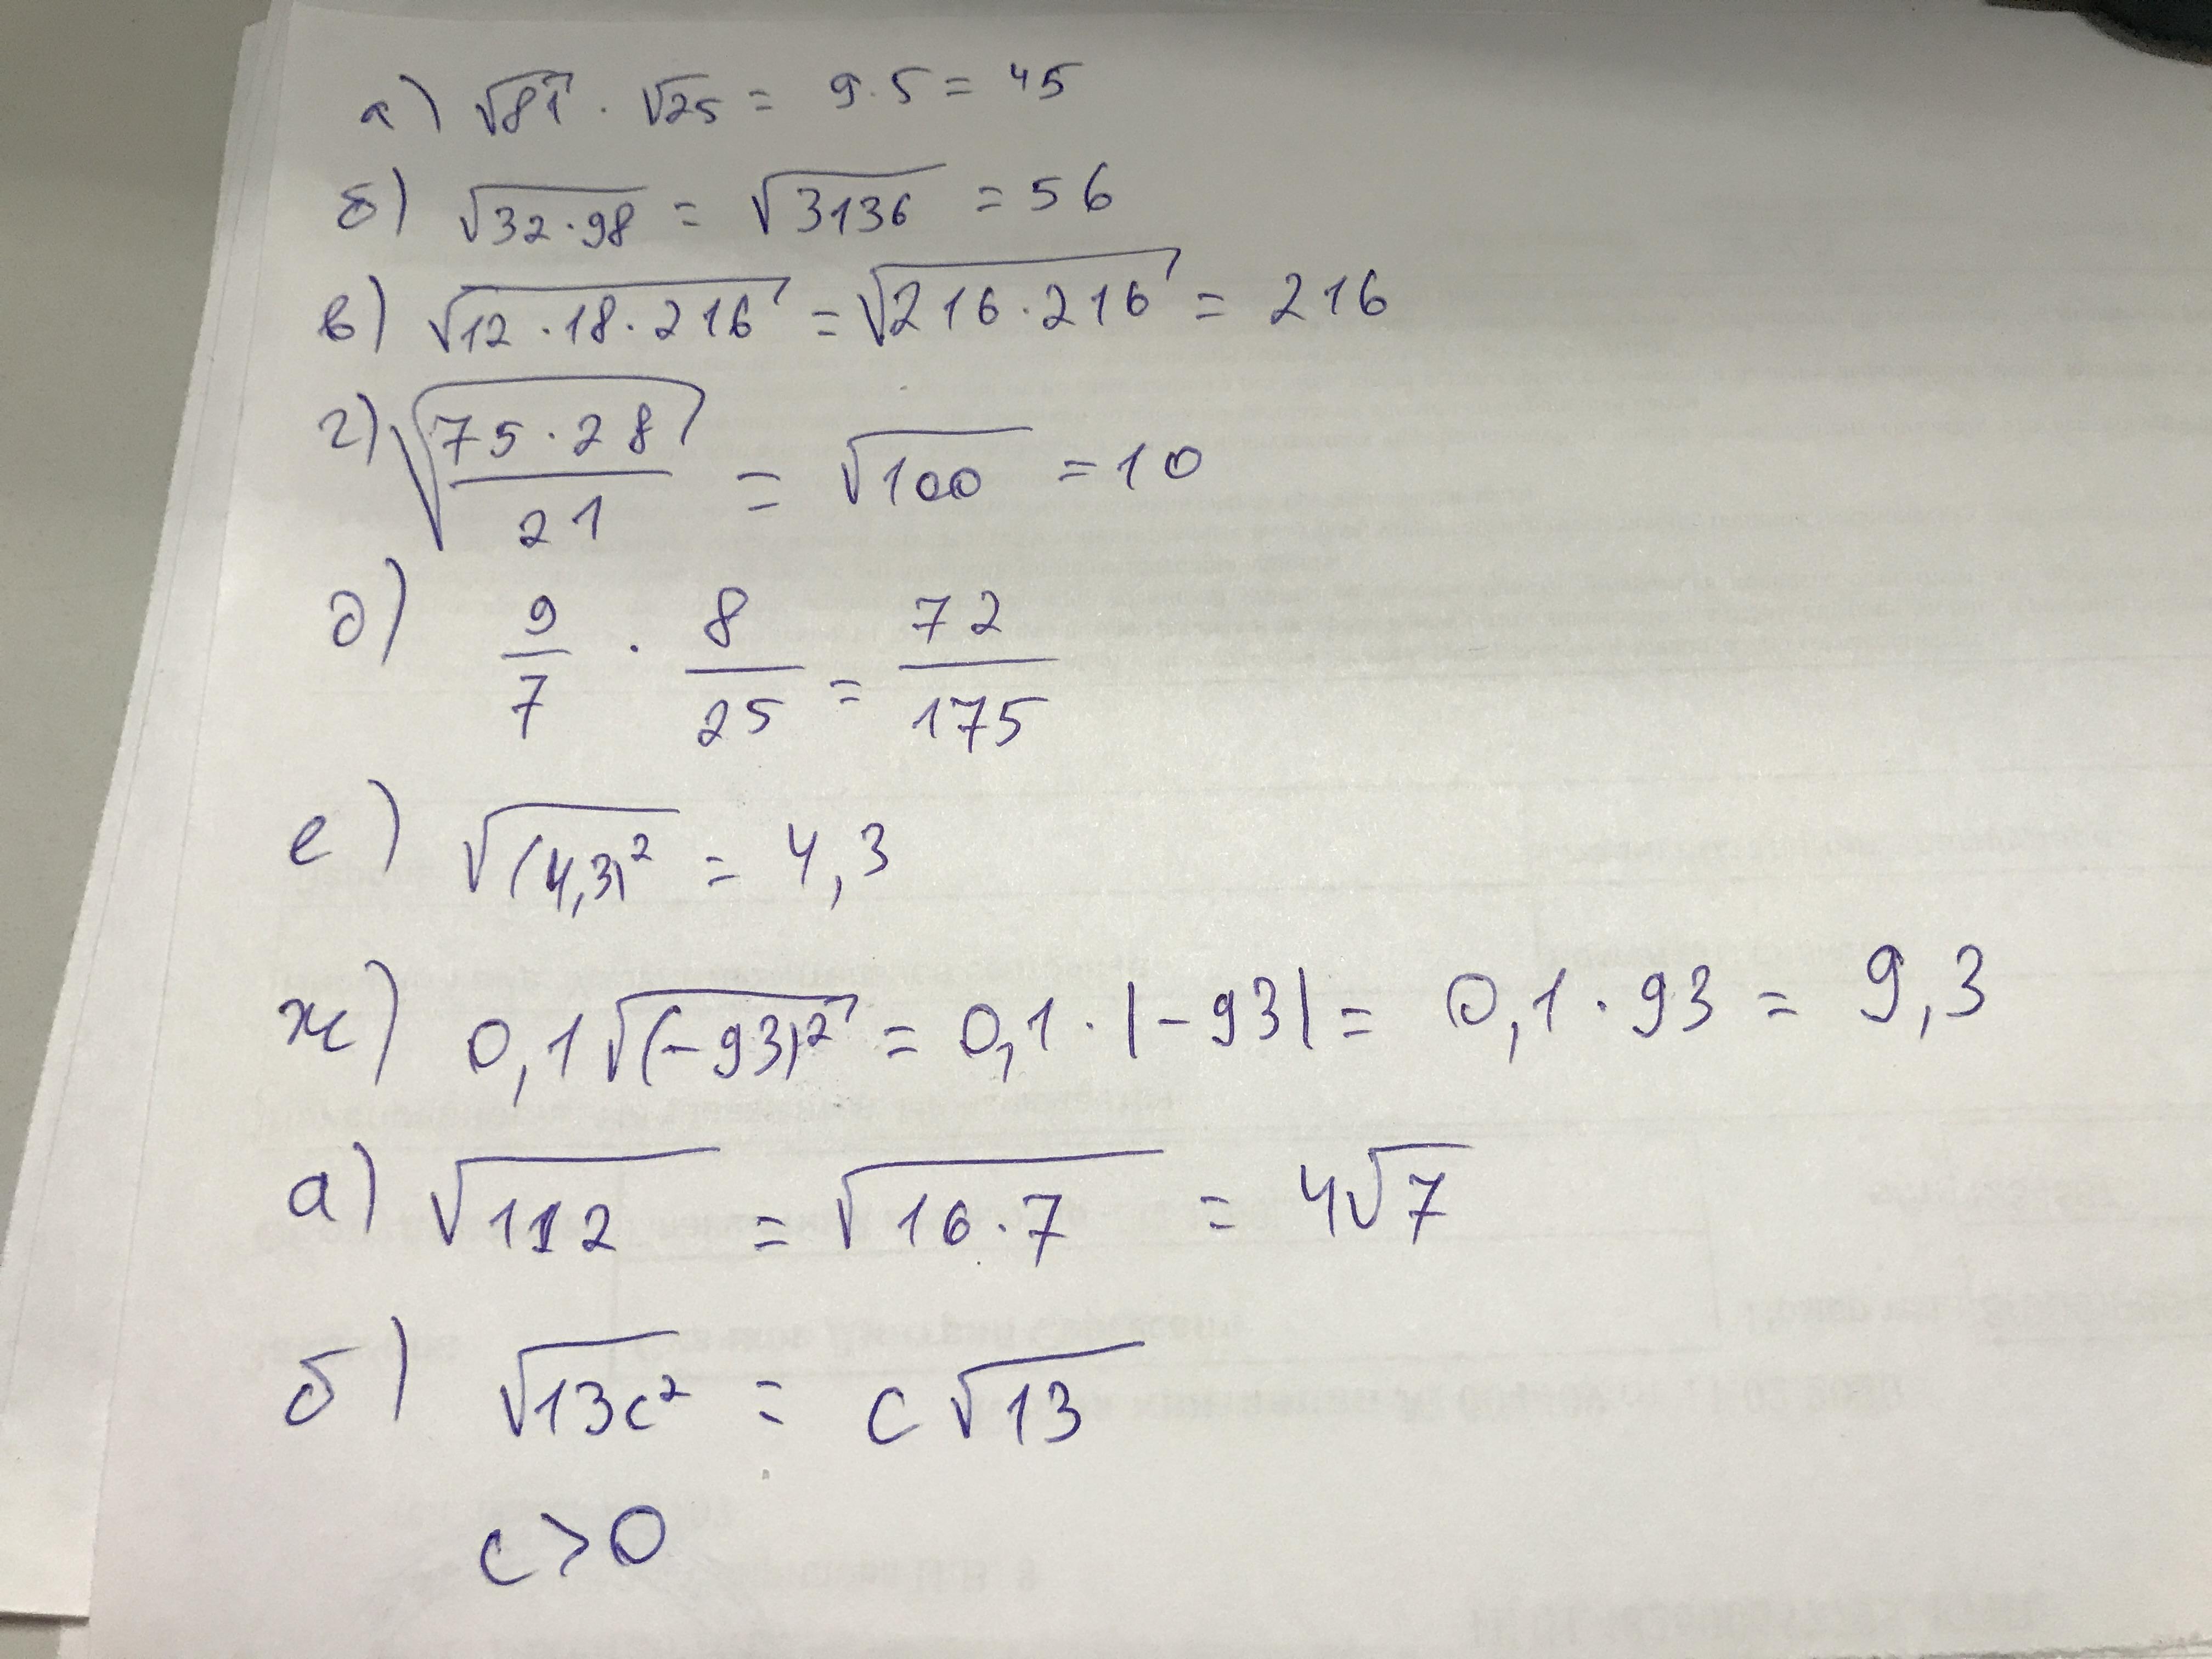 а) √81 · √25 = 9·5 = 45
б) √32·98 = √3136 = 56
в) √12·18·216 = √216·216 = 216
г) √75·28/21 = √100 = 10
д) 9/7 · 8/25 = 72/175
е) √(4,3)² = 4,3
ж) 0,1√(-93)² = 0,1·|-93| = 0,1·93 = 9,3
а) √112 = √16·7 = 4√7
б) √13c² = c√13
c>0